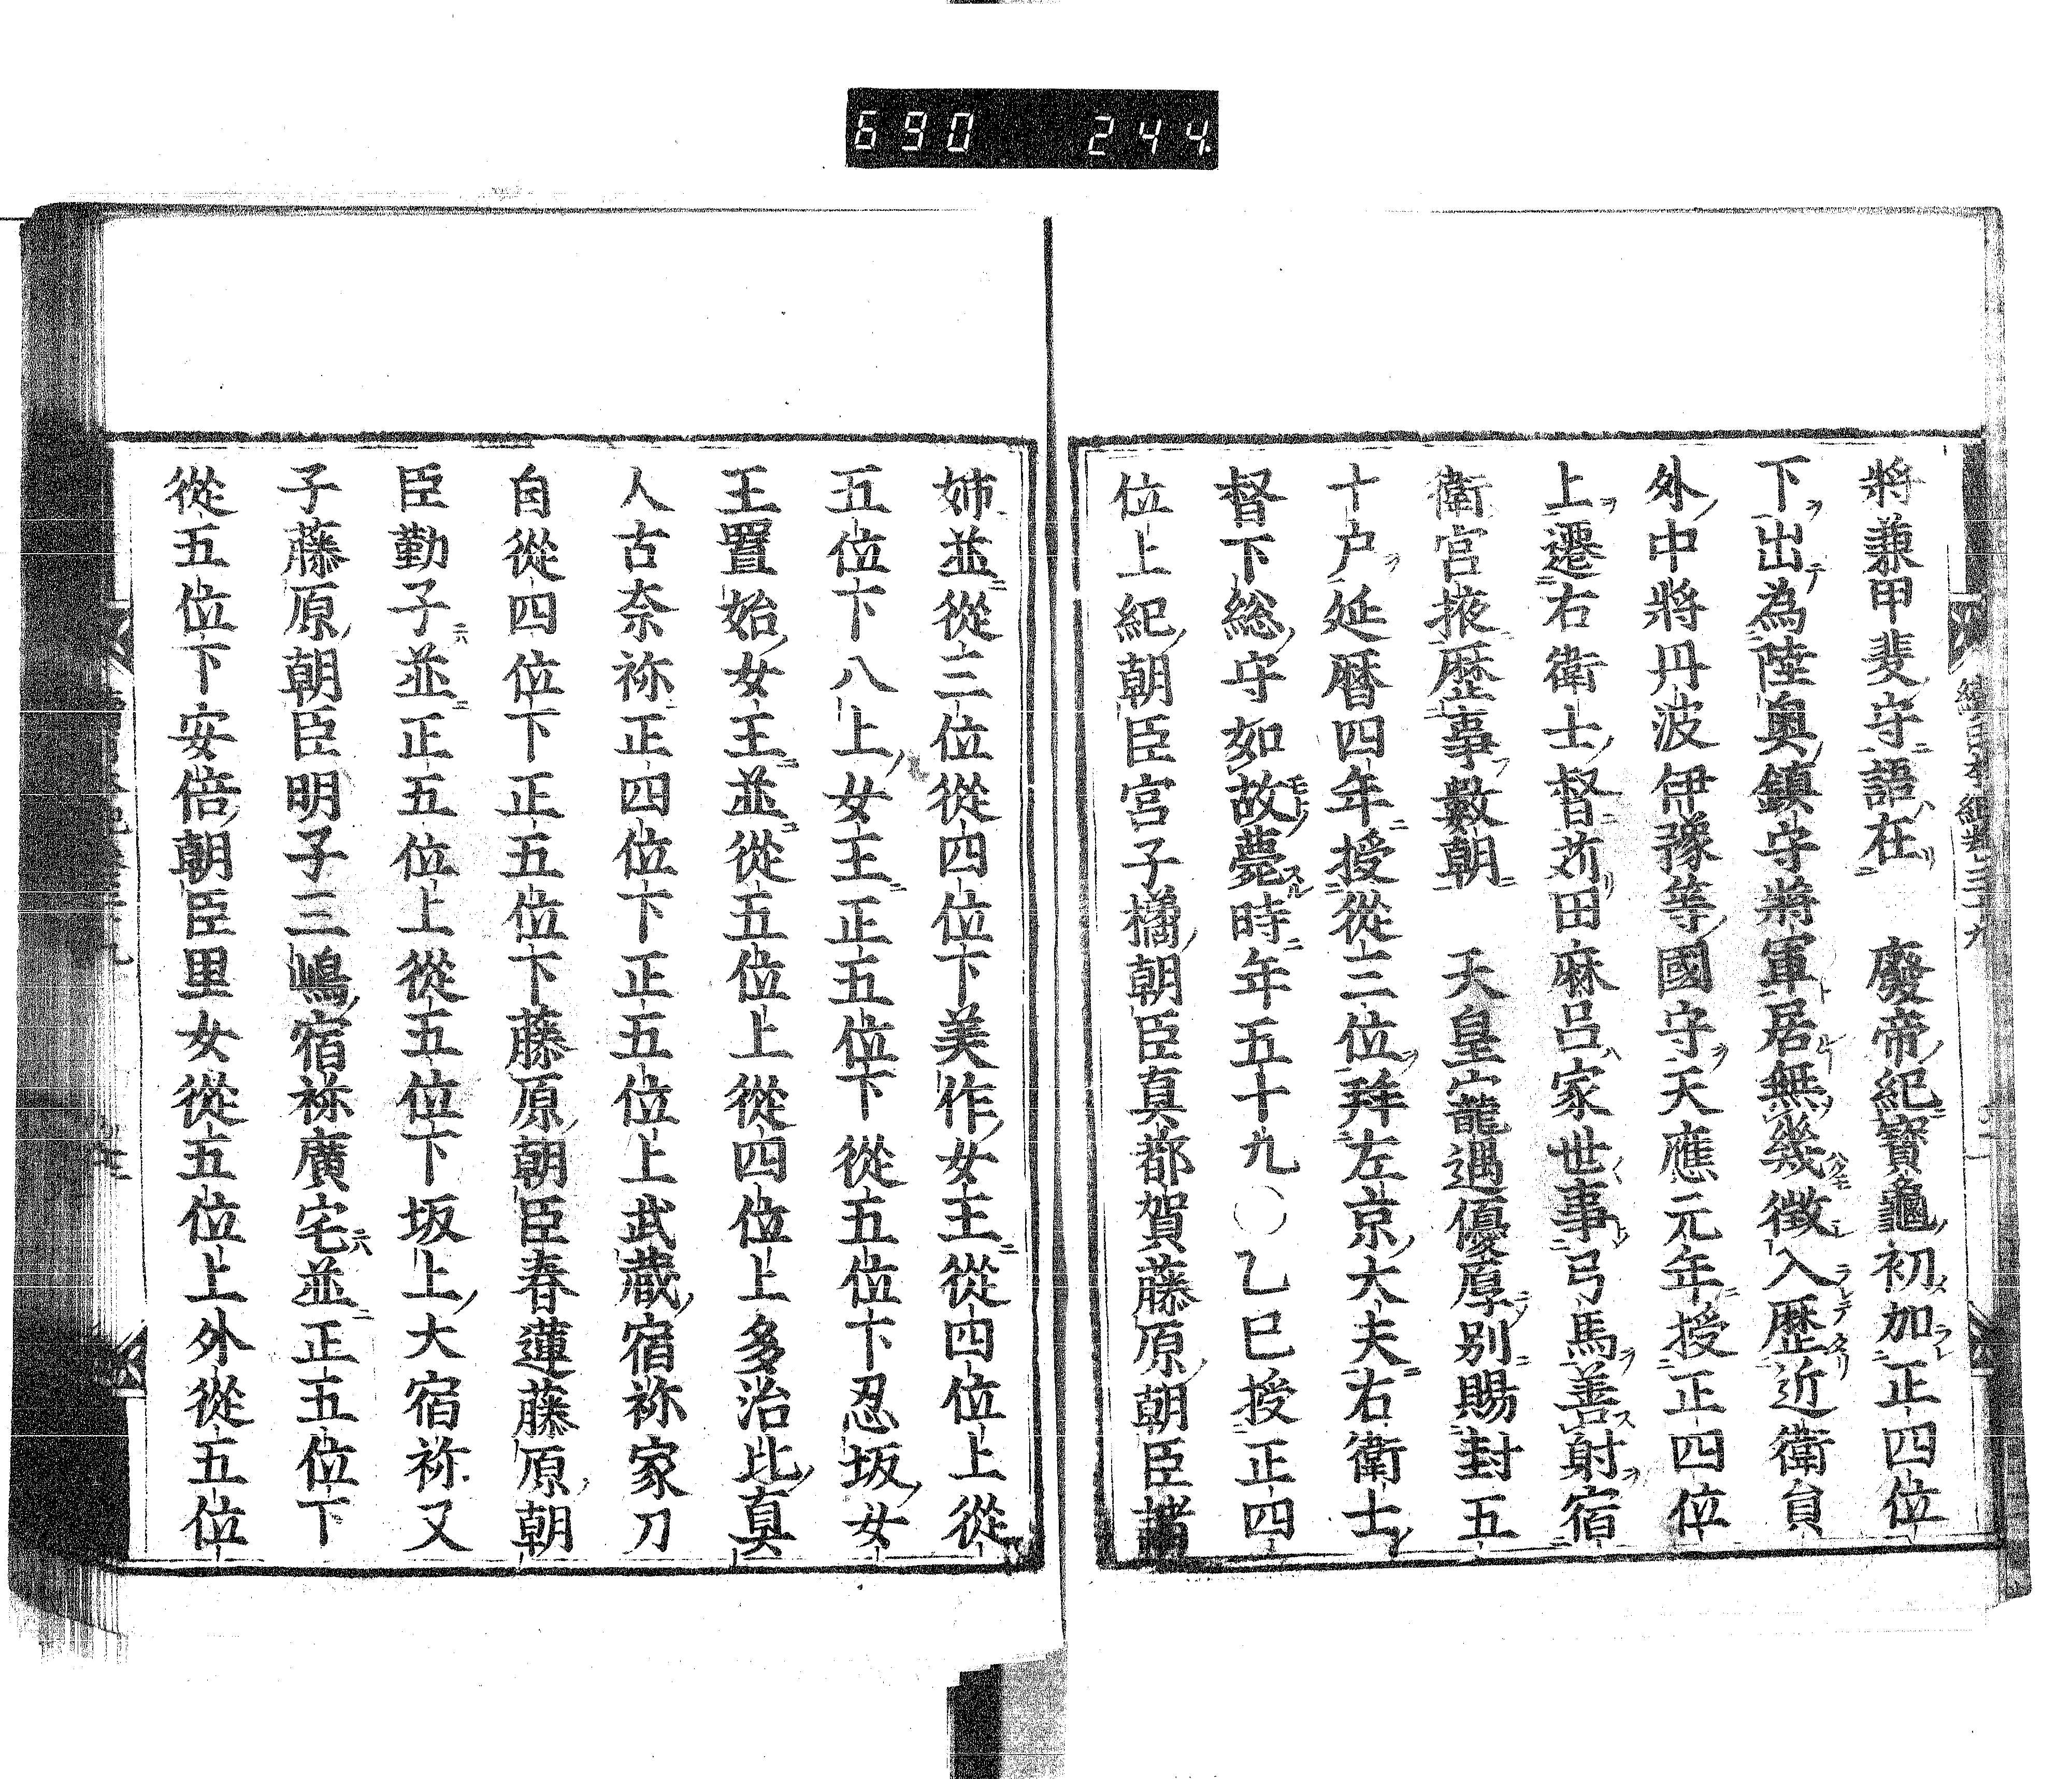 690 244
將兼甲斐守語在　廢帝紀寶龜初加正四位
下出為陸奥鎮守將軍居無幾徴入歴近衛員
外中將丹波伊豫等國守天應元年授正四位
上遷右衛士督苅田麻呂家世事弓馬善射宿
衛宮掖歴事數朝　天皇寵遇優厚別賜封五
十户延暦四年授從三位拜左京大夫右衛士
督下総守如故薨時年五十九〇乙巳授正四
位上紀朝臣宮子橘朝臣真都賀藤原朝臣諸
姉並從三位從四位下美作女王從四位上從
五位下八上女王正五位下從五位下忍坂女
王置始女王並從五位上從四位上多治比真
人古奈祢正四位下正五位上武蔵宿祢家刀
自從四位下正五位下藤原朝臣春蓮藤原朝
臣勤子並正五位上從五位下坂上大宿祢又
子藤原朝臣明子三嶋宿祢廣宅並正五位下
從五位下安倍朝臣里女從五位上外從五位